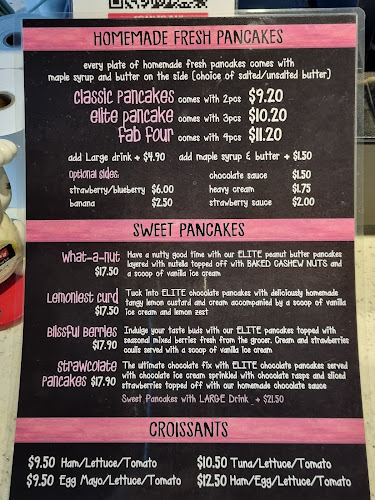 HOMEMADE FRESH PANCAKES
every plate of homemade fresh pancakes comes with
maple syrup and butter on the side (choice of salted/unsalted butter)
classic pancakes comes with 2pcs $9.20
elite pancake comes with 3pcs $10.20
fab four comes with 4pcs $11.20
add Large drink + $4.90 add maple syrup & butter + $1.50
Optional sides:
chocolate sauce $1.50
strawberry/blueberry $6.00 heavy cream $1.75
banana $2.50 strawberry sauce $2.00
SWEET PANCAKES
What-a-nut Have a nutty good time with our ELITE peanut butter pancakes
$17.50 layered with nutella topped off with BAKED CASHEW NUTS and
a scoop of vanilla ice cream
Lemoniest curd Tuck into ELITE chocolate pancakes with deliciously homemade
$17.50 tangy lemon custard and cream accompanied by a scoop of vanilla
ice cream and lemon zest
Blissful Berries Indulge your taste buds with our ELITE pancakes topped with
$17.90 seasonal mixed berries fresh from the grocer. Cream and strawberries
coulis served with a scoop of vanilla ice cream
Strawcolate The ultimate chocolate fix with ELITE chocolate pancakes served
Pancakes $17.90 with chocolate ice cream sprinkled with chocolate rasps and sliced
strawberries topped off with our homemade chocolate sauce
Sweet Pancakes with LARGE Drink + $21.50
CROISSANTS
$9.50 Ham/Lettuce/Tomato $10.50 Tuna/Lettuce/Tomato
$9.50 Egg Mayo/Lettuce/Tomato $12.50 Ham/Egg/Lettuce/Tomato